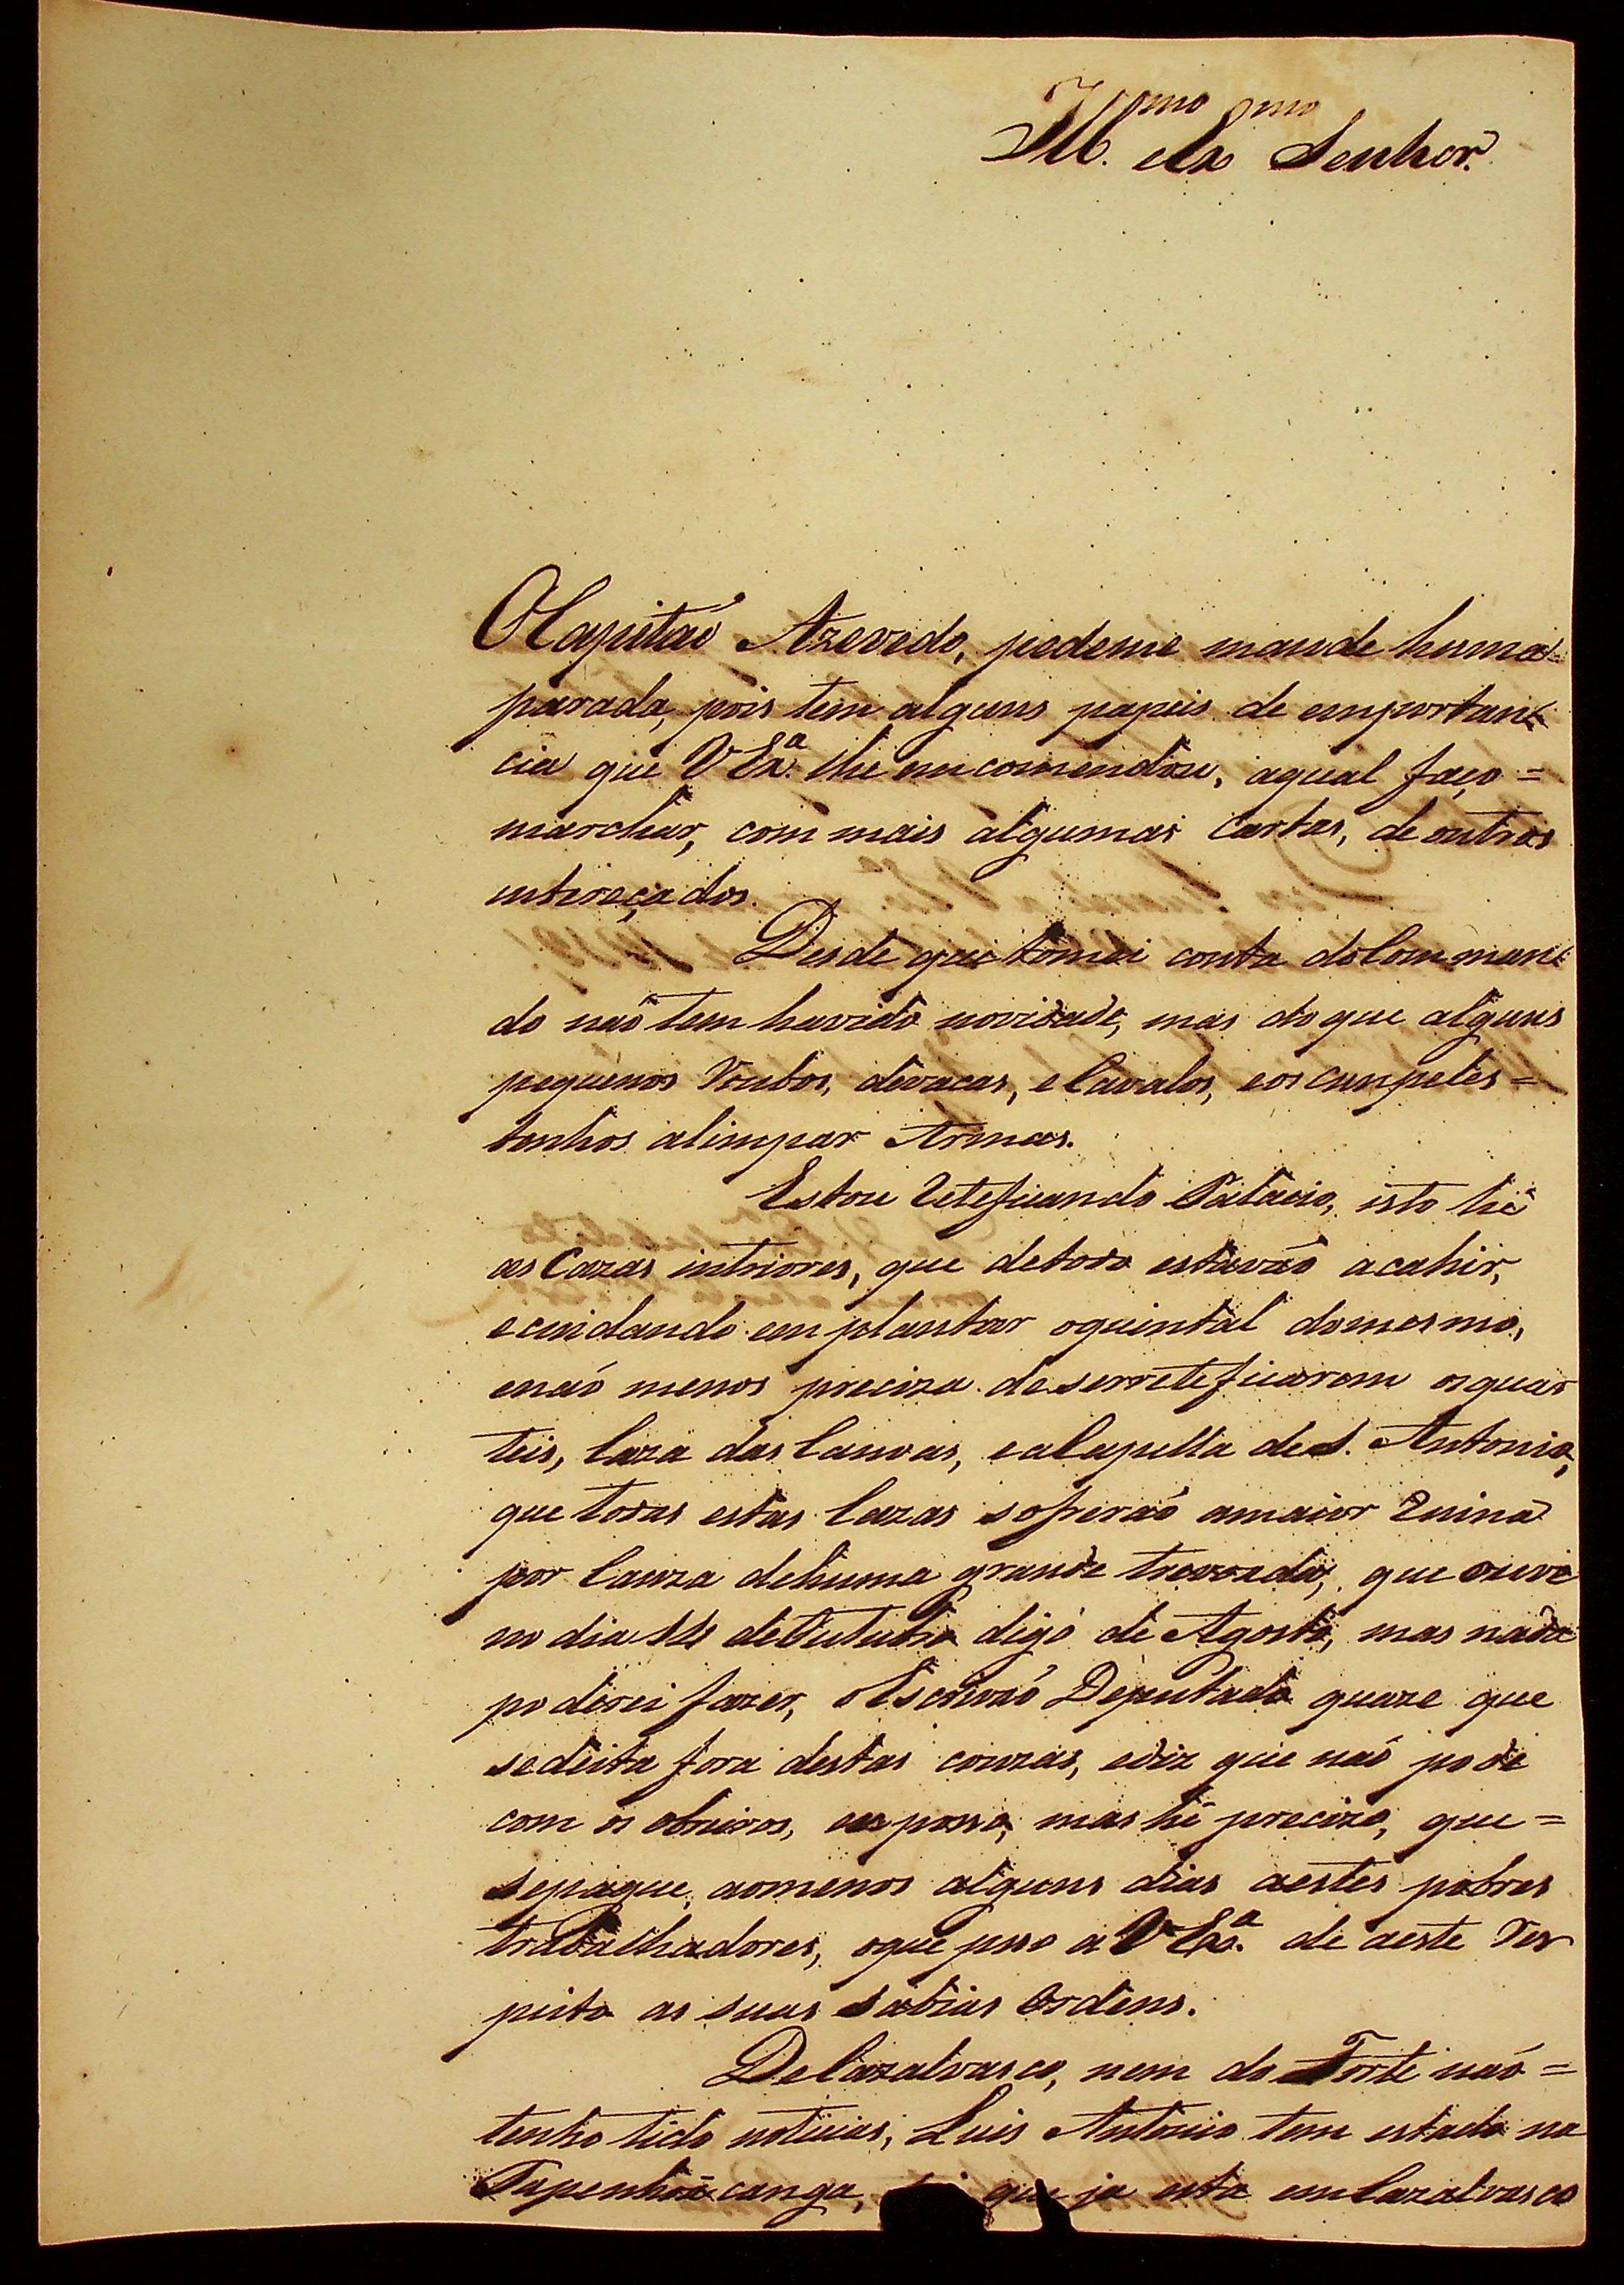 Ill.mo eEx.mo Senhor.
OCapitaõ Azevedo, pedeme mande huma
parada, pois tem alguns papeis de emportan=
cia que VEx.ª lhe emcomendou, aqual faço=
marchar, com mais algumas Cartas, de outros
intereçados.
Desde que tomei conta doComman=
do naõ tem havido novidade, mas do que alguns
pequenos Roubos, devacas, eCavalos, eos
tenhos alimpar Armas.
Estou Reteficando Palacio, isto hé
as Cazas intriores, que detodo estavaõ acahir,
ecuidando emplantar oquintal domesmo,
enaõ menos preciza deserreteficarem osquar
teis, Caza das Canoas, eaCapella deS. Antonio,
que todas estas Cazas sofreraõ amaior Ruina
por Cauza dehuma grande trovoada, que ouve
no dia 14 deOutubro digo de Agosto, mas nada
poderei fazer, oEscrivaõ Deputado quaze que
sedeita fora destas couzas, ediz que naõ pode
com os obreiros, eu posso, mas hé precizo, que=
sepague, aomenos alguns dias aestes pobres
trabalhadores, oque peço a VEx.ª de aeste Res
peito as suas Sabias Ordens.
DeCazalvasco, nem do Forte naõ=
tenho tido noticias, Luis Antonio tem estado na
Tapenhoacanga, que ja esta emCazalvasco